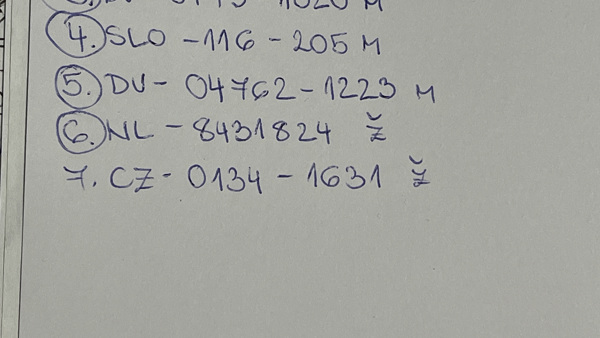 4. SLO - 116 - 205 M
5. DV - 04762 - 1223 M
6. NL - 8431824 Ž
7. CZ - 0134 - 1631 Ž